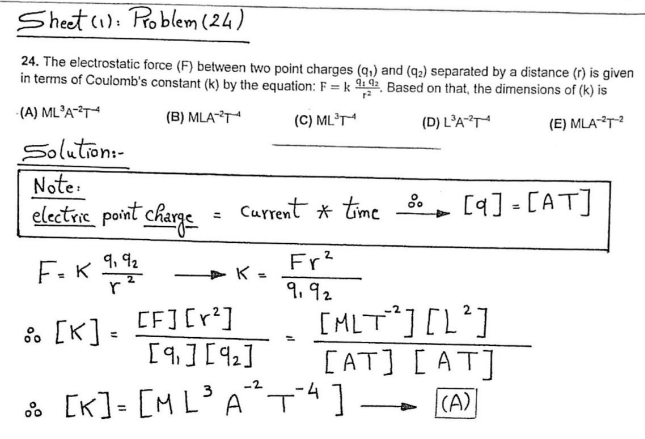 Sheet (1): Problem (24)
24. The electrostatic force (F) between two point charges (q₁) and (q₂) separated by a distance (r) is given
in terms of Coulomb's constant (k) by the equation: F = k q₁ q₂ / r². Based on that, the dimensions of (k) is
(A) ML³A⁻²T⁻⁴ (B) MLA⁻²T⁻⁴ (C) ML³T⁻⁴ (D) L³A⁻²T⁻⁴ (E) MLA⁻²T⁻²
Solution:-
Note:
electric point charge = current * time ஃ → [q] = [AT]
F = K q₁ q₂ / r² → K = Fr² / q₁ q₂
ஃ [K] = [F][r²] / [q₁][q₂] = [MLT⁻²][L²] / [AT][AT]
ஃ [K] = [ML³A⁻²T⁻⁴] → (A)